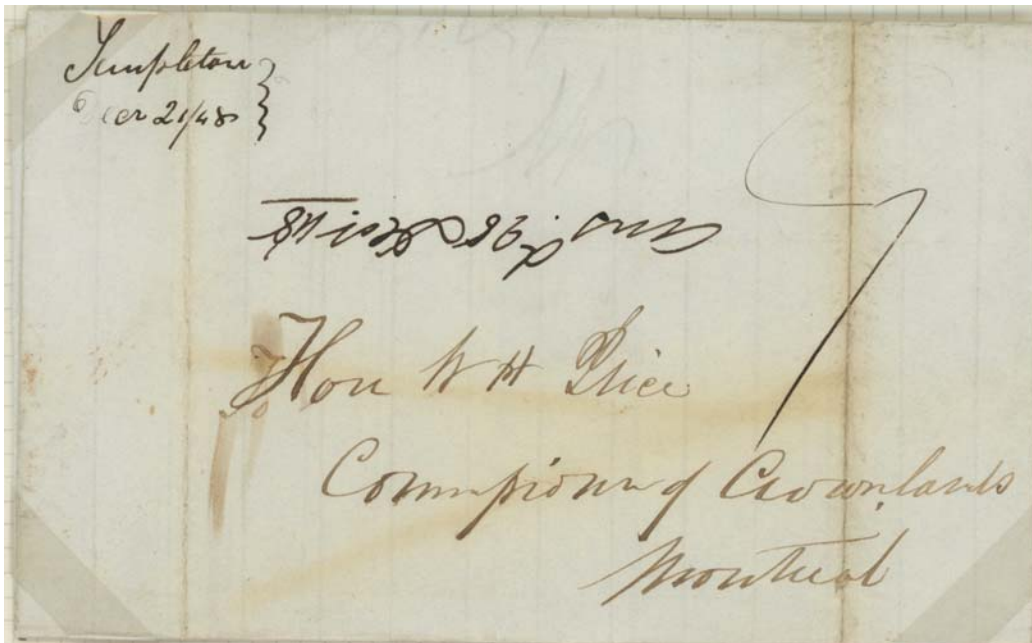 Templeton
Decr 21/48
7
Hon W H Price
Commissioner of Crown lands
Montreal